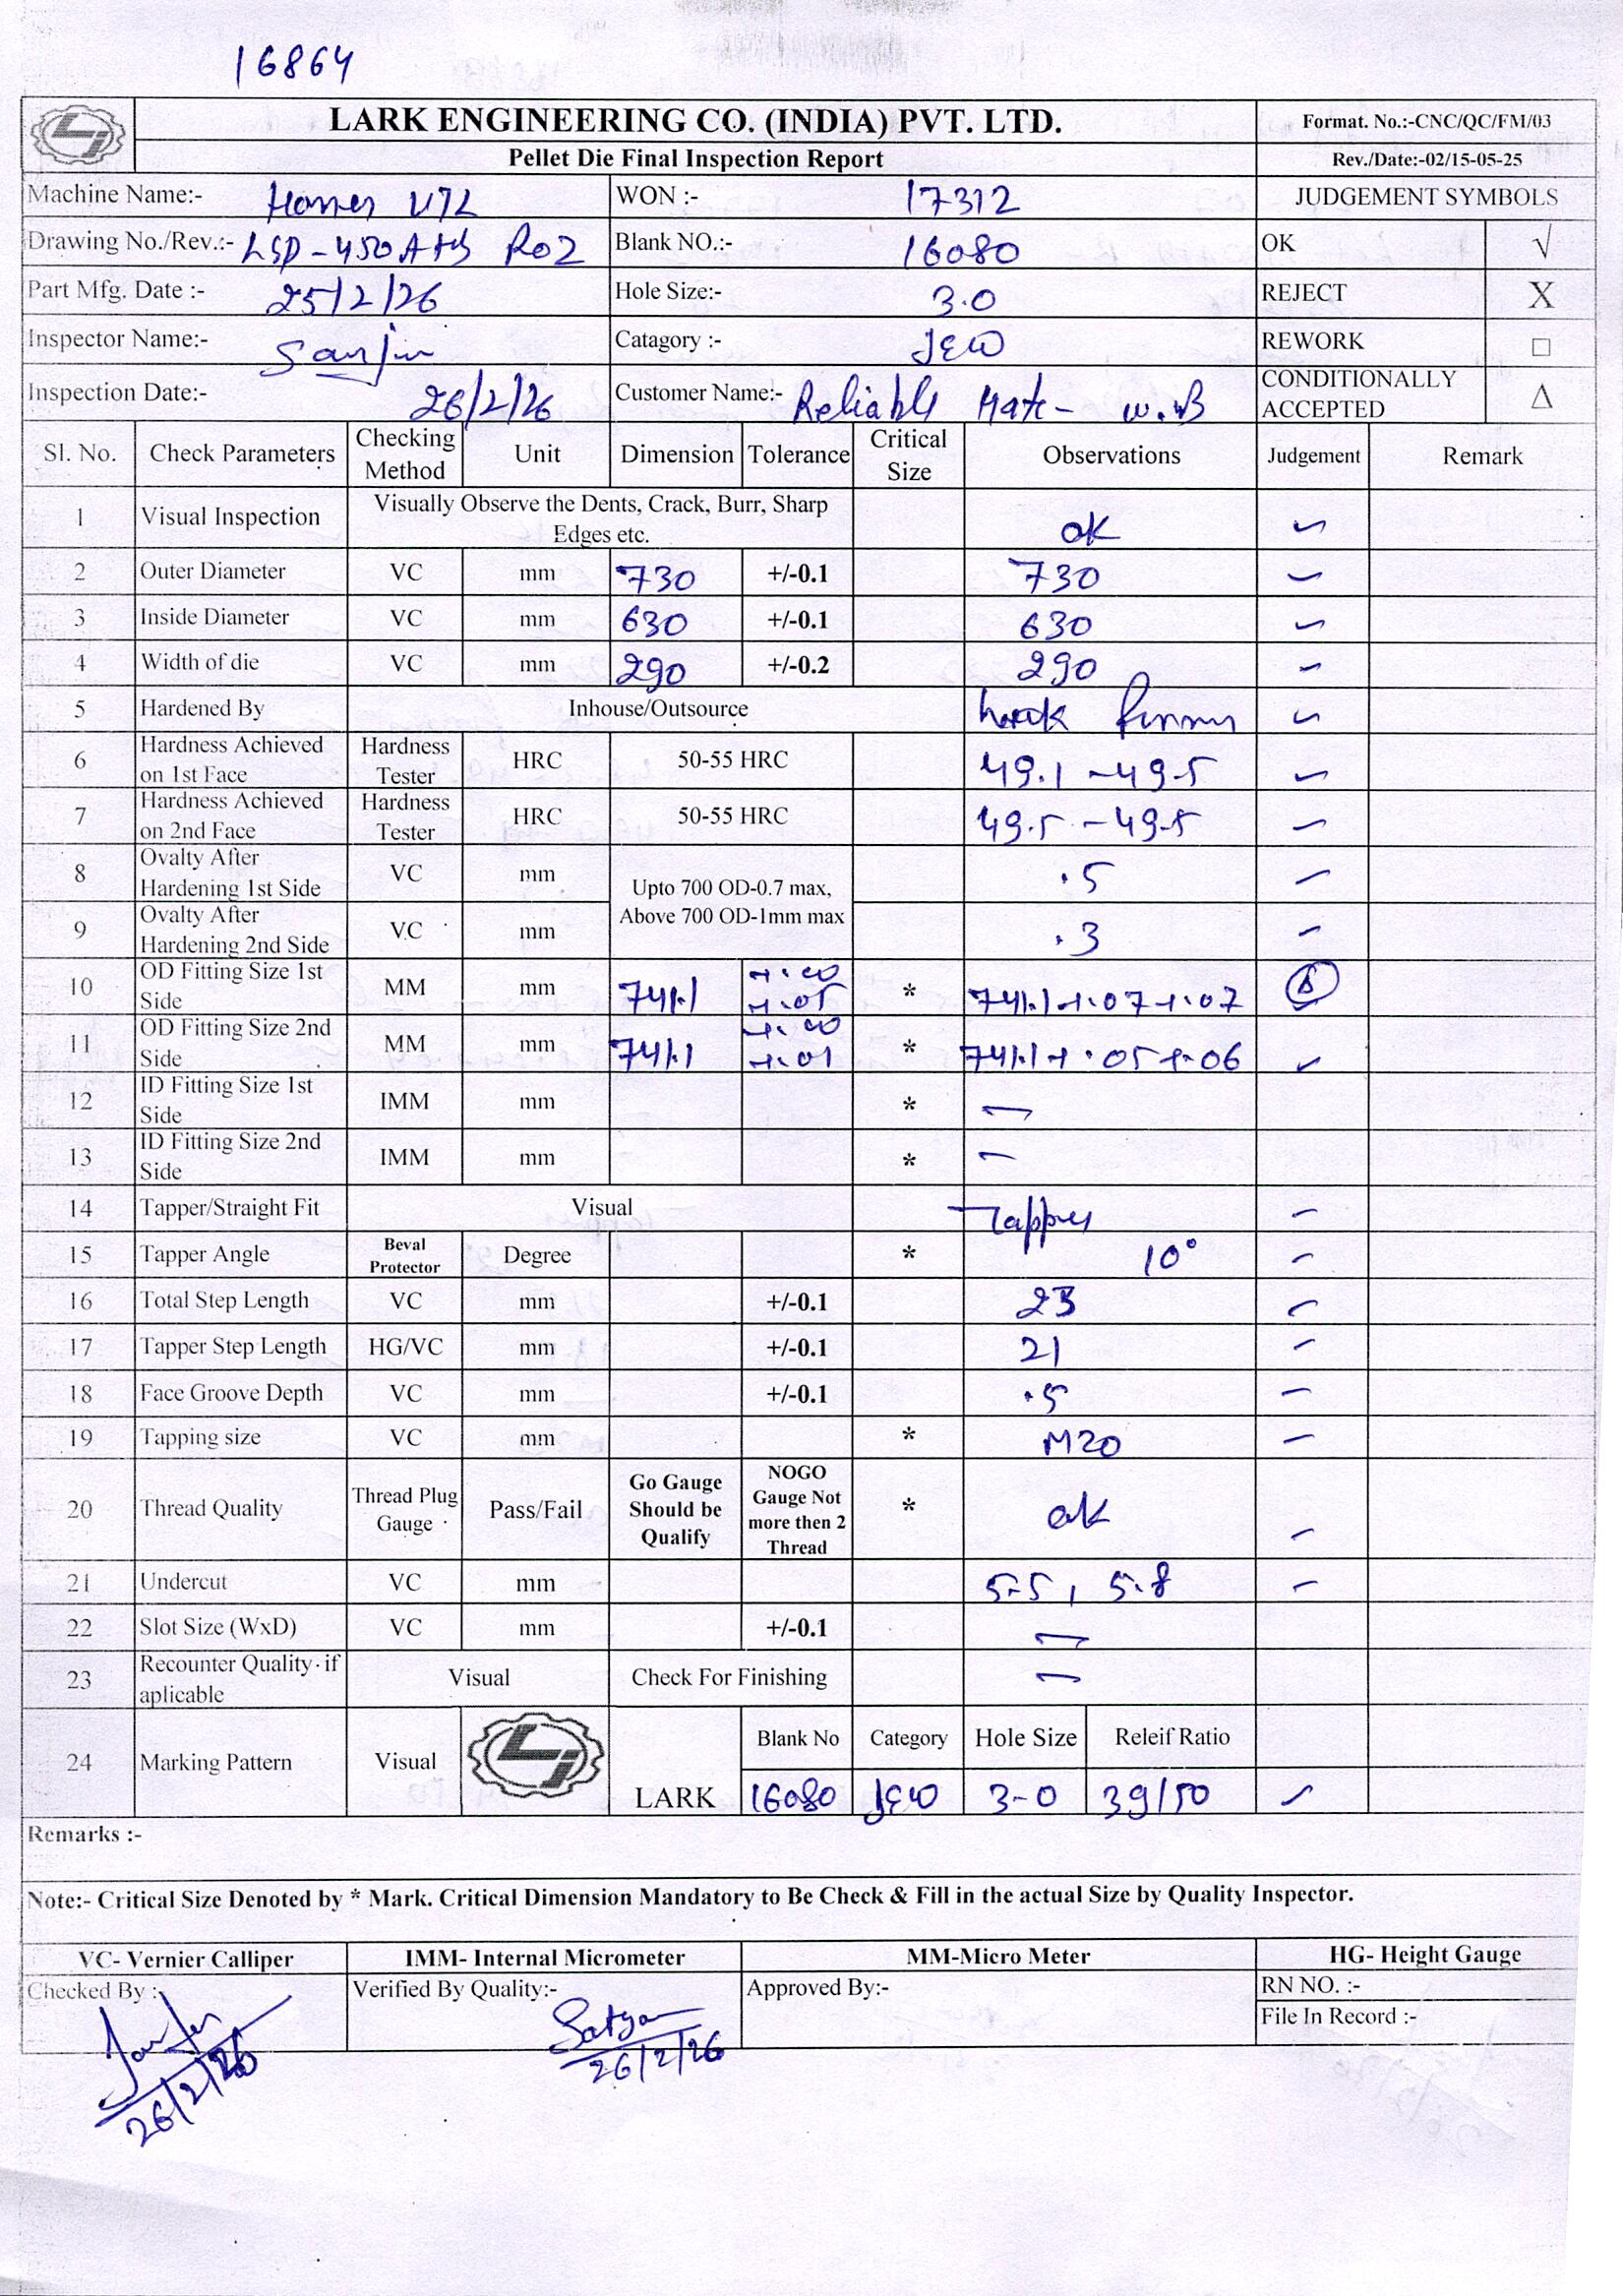 16864
LARK ENGINEERING CO. (INDIA) PVT. LTD. Format. No.:-CNC/QC/FM/03
Pellet Die Final Inspection Report Rev./Date:-02/15-05-25
Machine Name:- VTL WON :- 17312 JUDGEMENT SYMBOLS
Drawing No./Rev.:- LSD-450 R02 Blank NO.:- 16080 OK √
Part Mfg. Date :- 25/2/26 Hole Size:- 3.0 REJECT X
Inspector Name:- Catagory :- JEW REWORK □
Inspection Date:- 26/2/26 Customer Name:- Reliable W.B CONDITIONALLY ACCEPTED Δ
Sl. No. Check Parameters Checking Method Unit Dimension Tolerance Critical Size Observations Judgement Remark
1 Visual Inspection Visually Observe the Dents, Crack, Burr, Sharp Edges etc. ok ✓
2 Outer Diameter VC mm 730 +/-0.1 730 ✓
3 Inside Diameter VC mm 630 +/-0.1 630 ✓
4 Width of die VC mm 290 +/-0.2 290 ✓
5 Hardened By Inhouse/Outsource ✓
6 Hardness Achieved on 1st Face Hardness Tester HRC 50-55 HRC 49.1 - 49.5 ✓
7 Hardness Achieved on 2nd Face Hardness Tester HRC 50-55 HRC 49.5 - 49.8 ✓
8 Ovalty After Hardening 1st Side VC mm Upto 700 OD-0.7 max, Above 700 OD-1mm max .5 ✓
9 Ovalty After Hardening 2nd Side VC mm .3 ✓
10 OD Fitting Size 1st Side MM mm 741.1 +.00 +.05 * 741.1 +.07 +.07
11 OD Fitting Size 2nd Side MM mm 741.1 +.00 * 741.1 +.05 +.06 ✓
12 ID Fitting Size 1st Side IMM mm * —
13 ID Fitting Size 2nd Side IMM mm * —
14 Tapper/Straight Fit Visual Tapper ✓
15 Tapper Angle Beval Protector Degree * 10° ✓
16 Total Step Length VC mm +/-0.1 23 ✓
17 Tapper Step Length HG/VC mm +/-0.1 21 ✓
18 Face Groove Depth VC mm +/-0.1 .5 ✓
19 Tapping size VC mm * M20 ✓
20 Thread Quality Thread Plug Gauge Pass/Fail Go Gauge Should be Qualify NOGO Gauge Not more then 2 Thread * ok ✓
21 Undercut VC mm 5.5, 5.8 ✓
22 Slot Size (WxD) VC mm +/-0.1 —
23 Recounter Quality if aplicable Visual Check For Finishing —
24 Marking Pattern Visual LARK Blank No Category Hole Size Releif Ratio
16080 JEW 3.0 39/50 ✓
Remarks :-
Note:- Critical Size Denoted by * Mark. Critical Dimension Mandatory to Be Check & Fill in the actual Size by Quality Inspector.
VC- Vernier Calliper IMM- Internal Micrometer MM-Micro Meter HG- Height Gauge
Checked By :- Verified By Quality:- Approved By:- RN NO. :-
File In Record :-
Satya
26/2/26
26/2/26